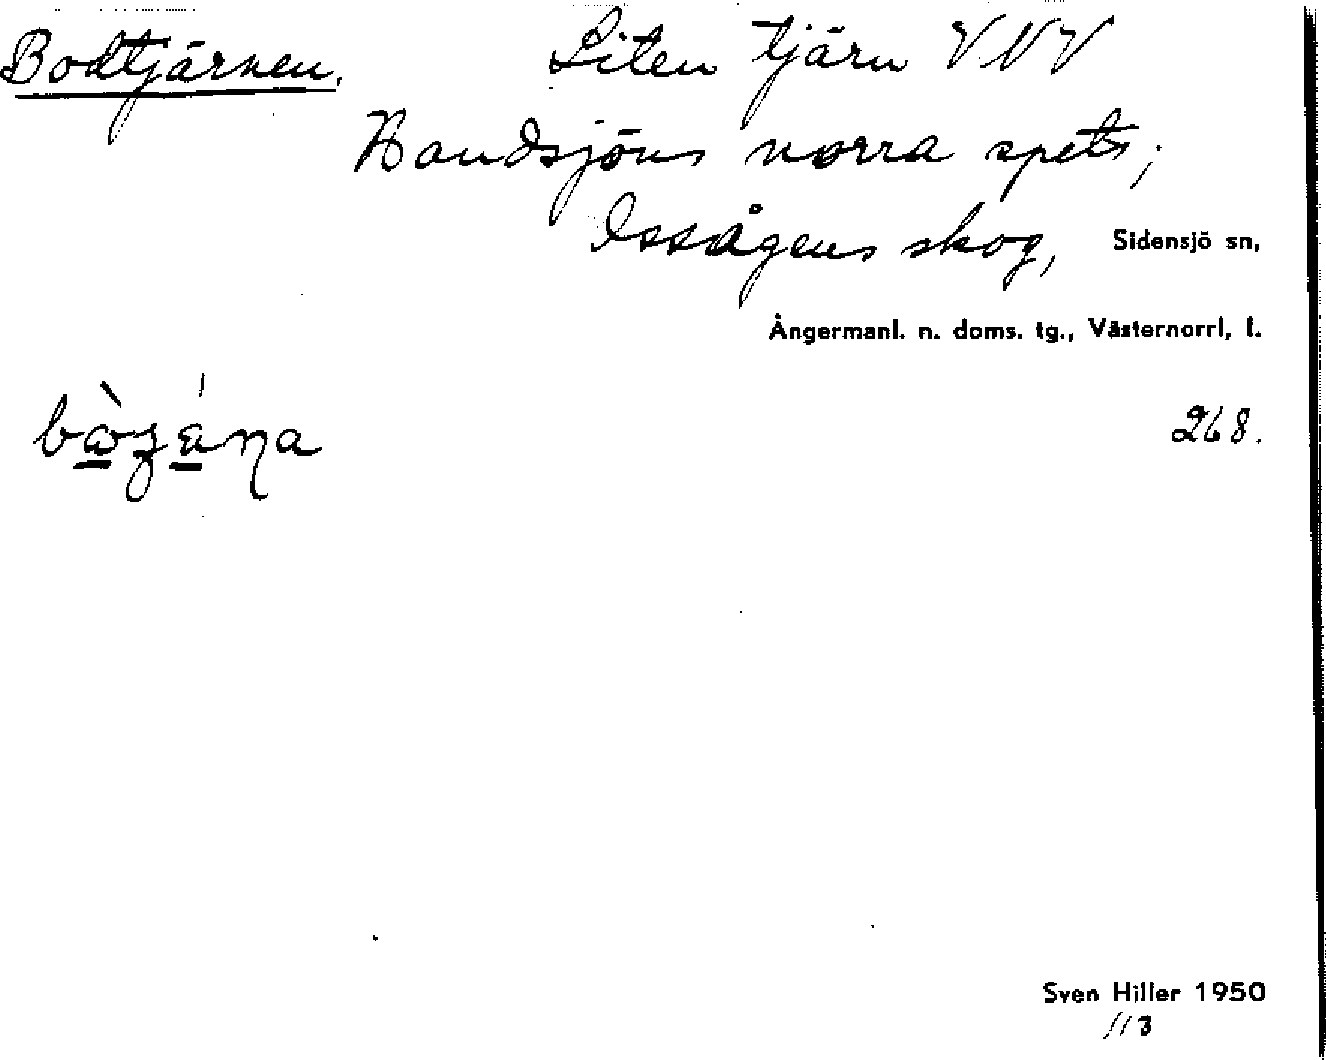 Bodtjärnen. Liten tjärn VNV
Bandsjöns norra spets;
Issågens skog, Sidensjö sn,
Ångermanl. n. doms. tg., Västernorrl, l.
268.
Sven Hiller 1950
113